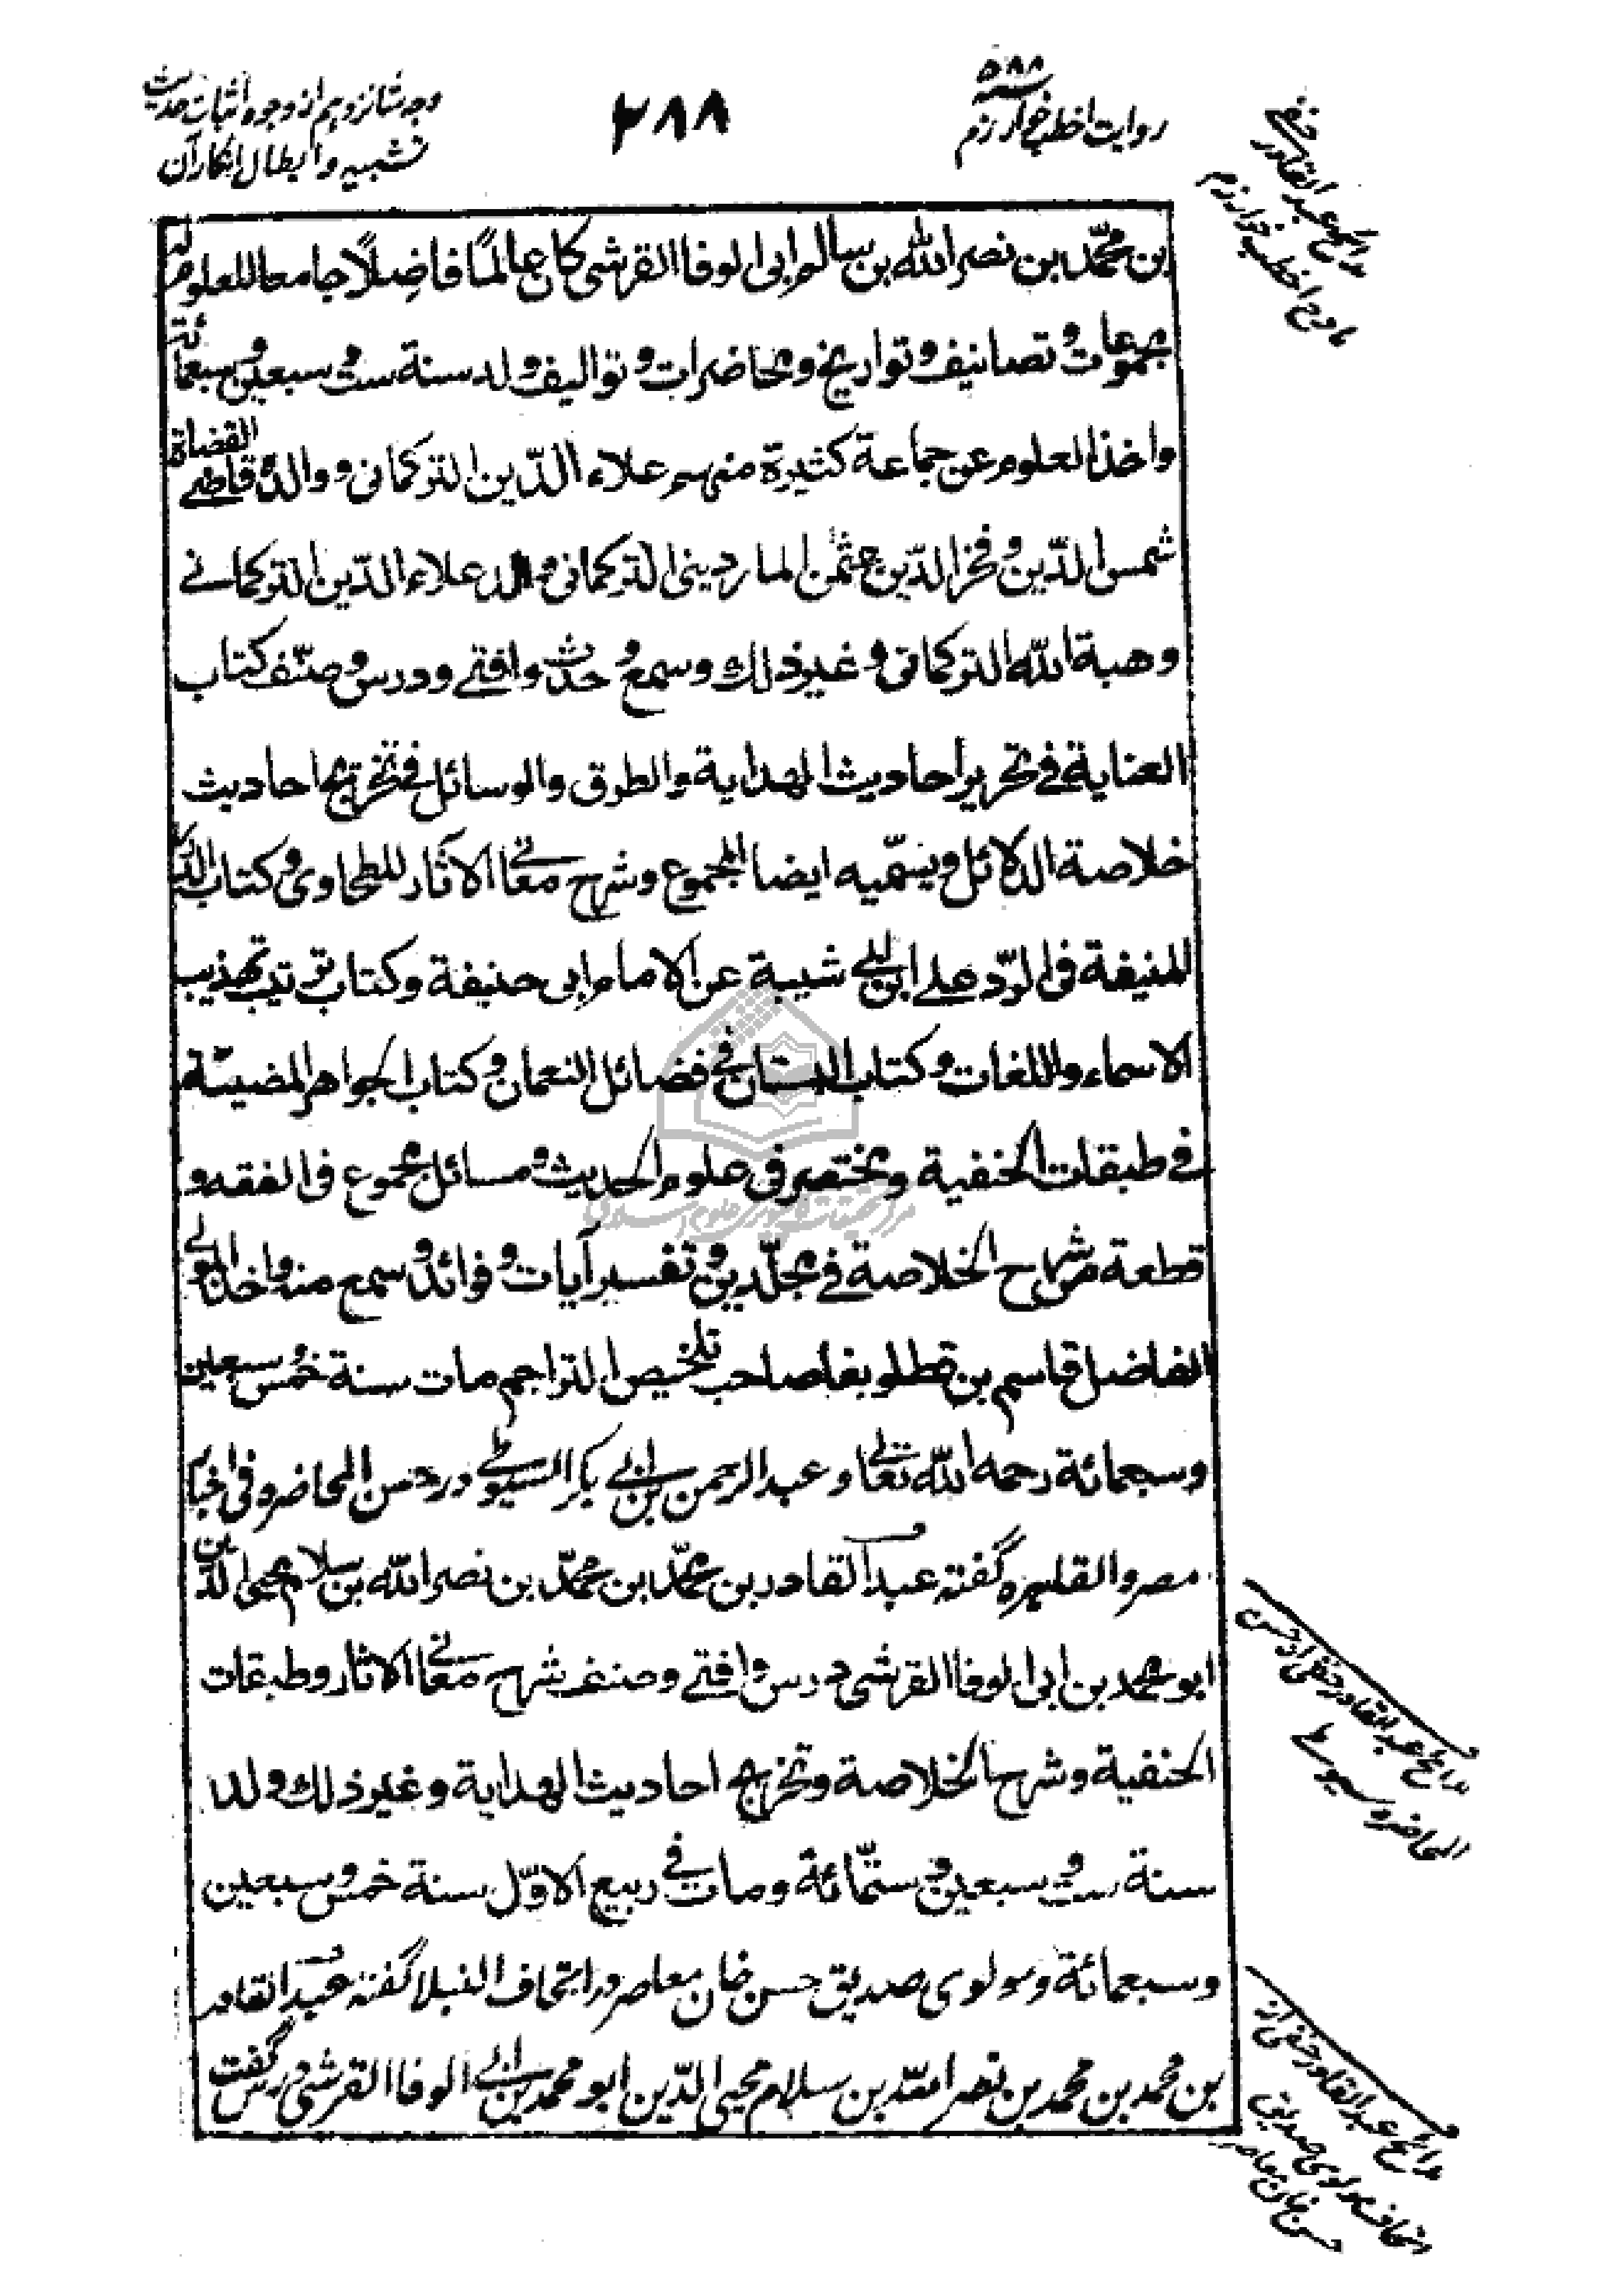 وجه شانزدهم از وجوه اثبات حدیث
تشبیه و ابطال انکار آن
۲۸۸
۵۸۸
روایت اخطب خوارزم
مدائح عبد القادر حنفی
مادح اخطب خوارزم
بن محمّد بن نصر الله بن سالم ابی الوفا القرشی کان عالمًا فاضِلًا جامعا للعلوم له
مجموعات و تصانیف و تواریخ و محاضرات و توالیف ولد سنة ست و سبعین و سبعمائة
واخذ العلوم عن جماعة کثیرة منهم علاء الدّین الترکمانی و والدهٔ قاضی القضاة
شمس الدّین و فخر الدّین عثمٰن الماردینی الترکمانی والد علاء الدّین الترکمانی
وهبة الله الترکمانی و غیر ذلك و سمع و حدّث وافتی و درس و صنّف کتاب
العنایة فی تحریر احادیث الهدایة والطرق والوسائل فی تخریج احادیث
خلاصة الدلائل و یسمّیه ایضا المجموع و شرح معانی الآثار للطحاوی و کتاب الدرر
المنیفة فی الردّ علی ابن ابی شیبة عن الامام ابی حنیفة و کتاب ترتیب تهذیب
الاسماء واللغات و کتاب البستان فی فضائل النعمان و کتاب الجواهر المضیّة
فی طبقات الحنفیة و مختصر فی علوم الحدیث و مسائل مجموع فی الفقه و
قطعة من شرح الخلاصة فی مجلّدین و تفسیر آیات و فوائد و سمع منه واخذ المولی
الفاضل قاسم بن قطلوبغا صاحب تلخیص التراجم مات سنة خمس و سبعین
وسبعمائة رحمه الله تعالی و عبد الرحمن بن ابی بکر السیوطی در حسن المحاضره فی اخبار
مصر والقاهره گفته عبد القادر بن محمّد بن محمّد بن نصر الله بن سلام محیی الدّین
ابو محمد بن ابی الوفا القرشی درس وافتی و صنف شرح معانی الاثار و طبقات
الحنفیة و شرح الخلاصة و تخریج احادیث الهدایة و غیر ذلك ولد
سنة ست و سبعین و ستّمائة و مات فی ربیع الاوّل سنة خمس و سبعین
وسبعمائة و مولوی صدیق حسن خان معاصر در اتحاف النبلا گفته عبد القادر
بن محمد بن محمد بن نصر الله بن سلام محیی الدّین ابو محمد بن ابی الوفا القرشی درس گفت
مدائح عبد القادر حنفی از حسن
المحاضره سیوطی
مدائح عبد القادر حنفی از
اتحاف مولوی صدیق
حسن خان معاصر
مرکز تحقیقات کامپیوتری علوم اسلامی